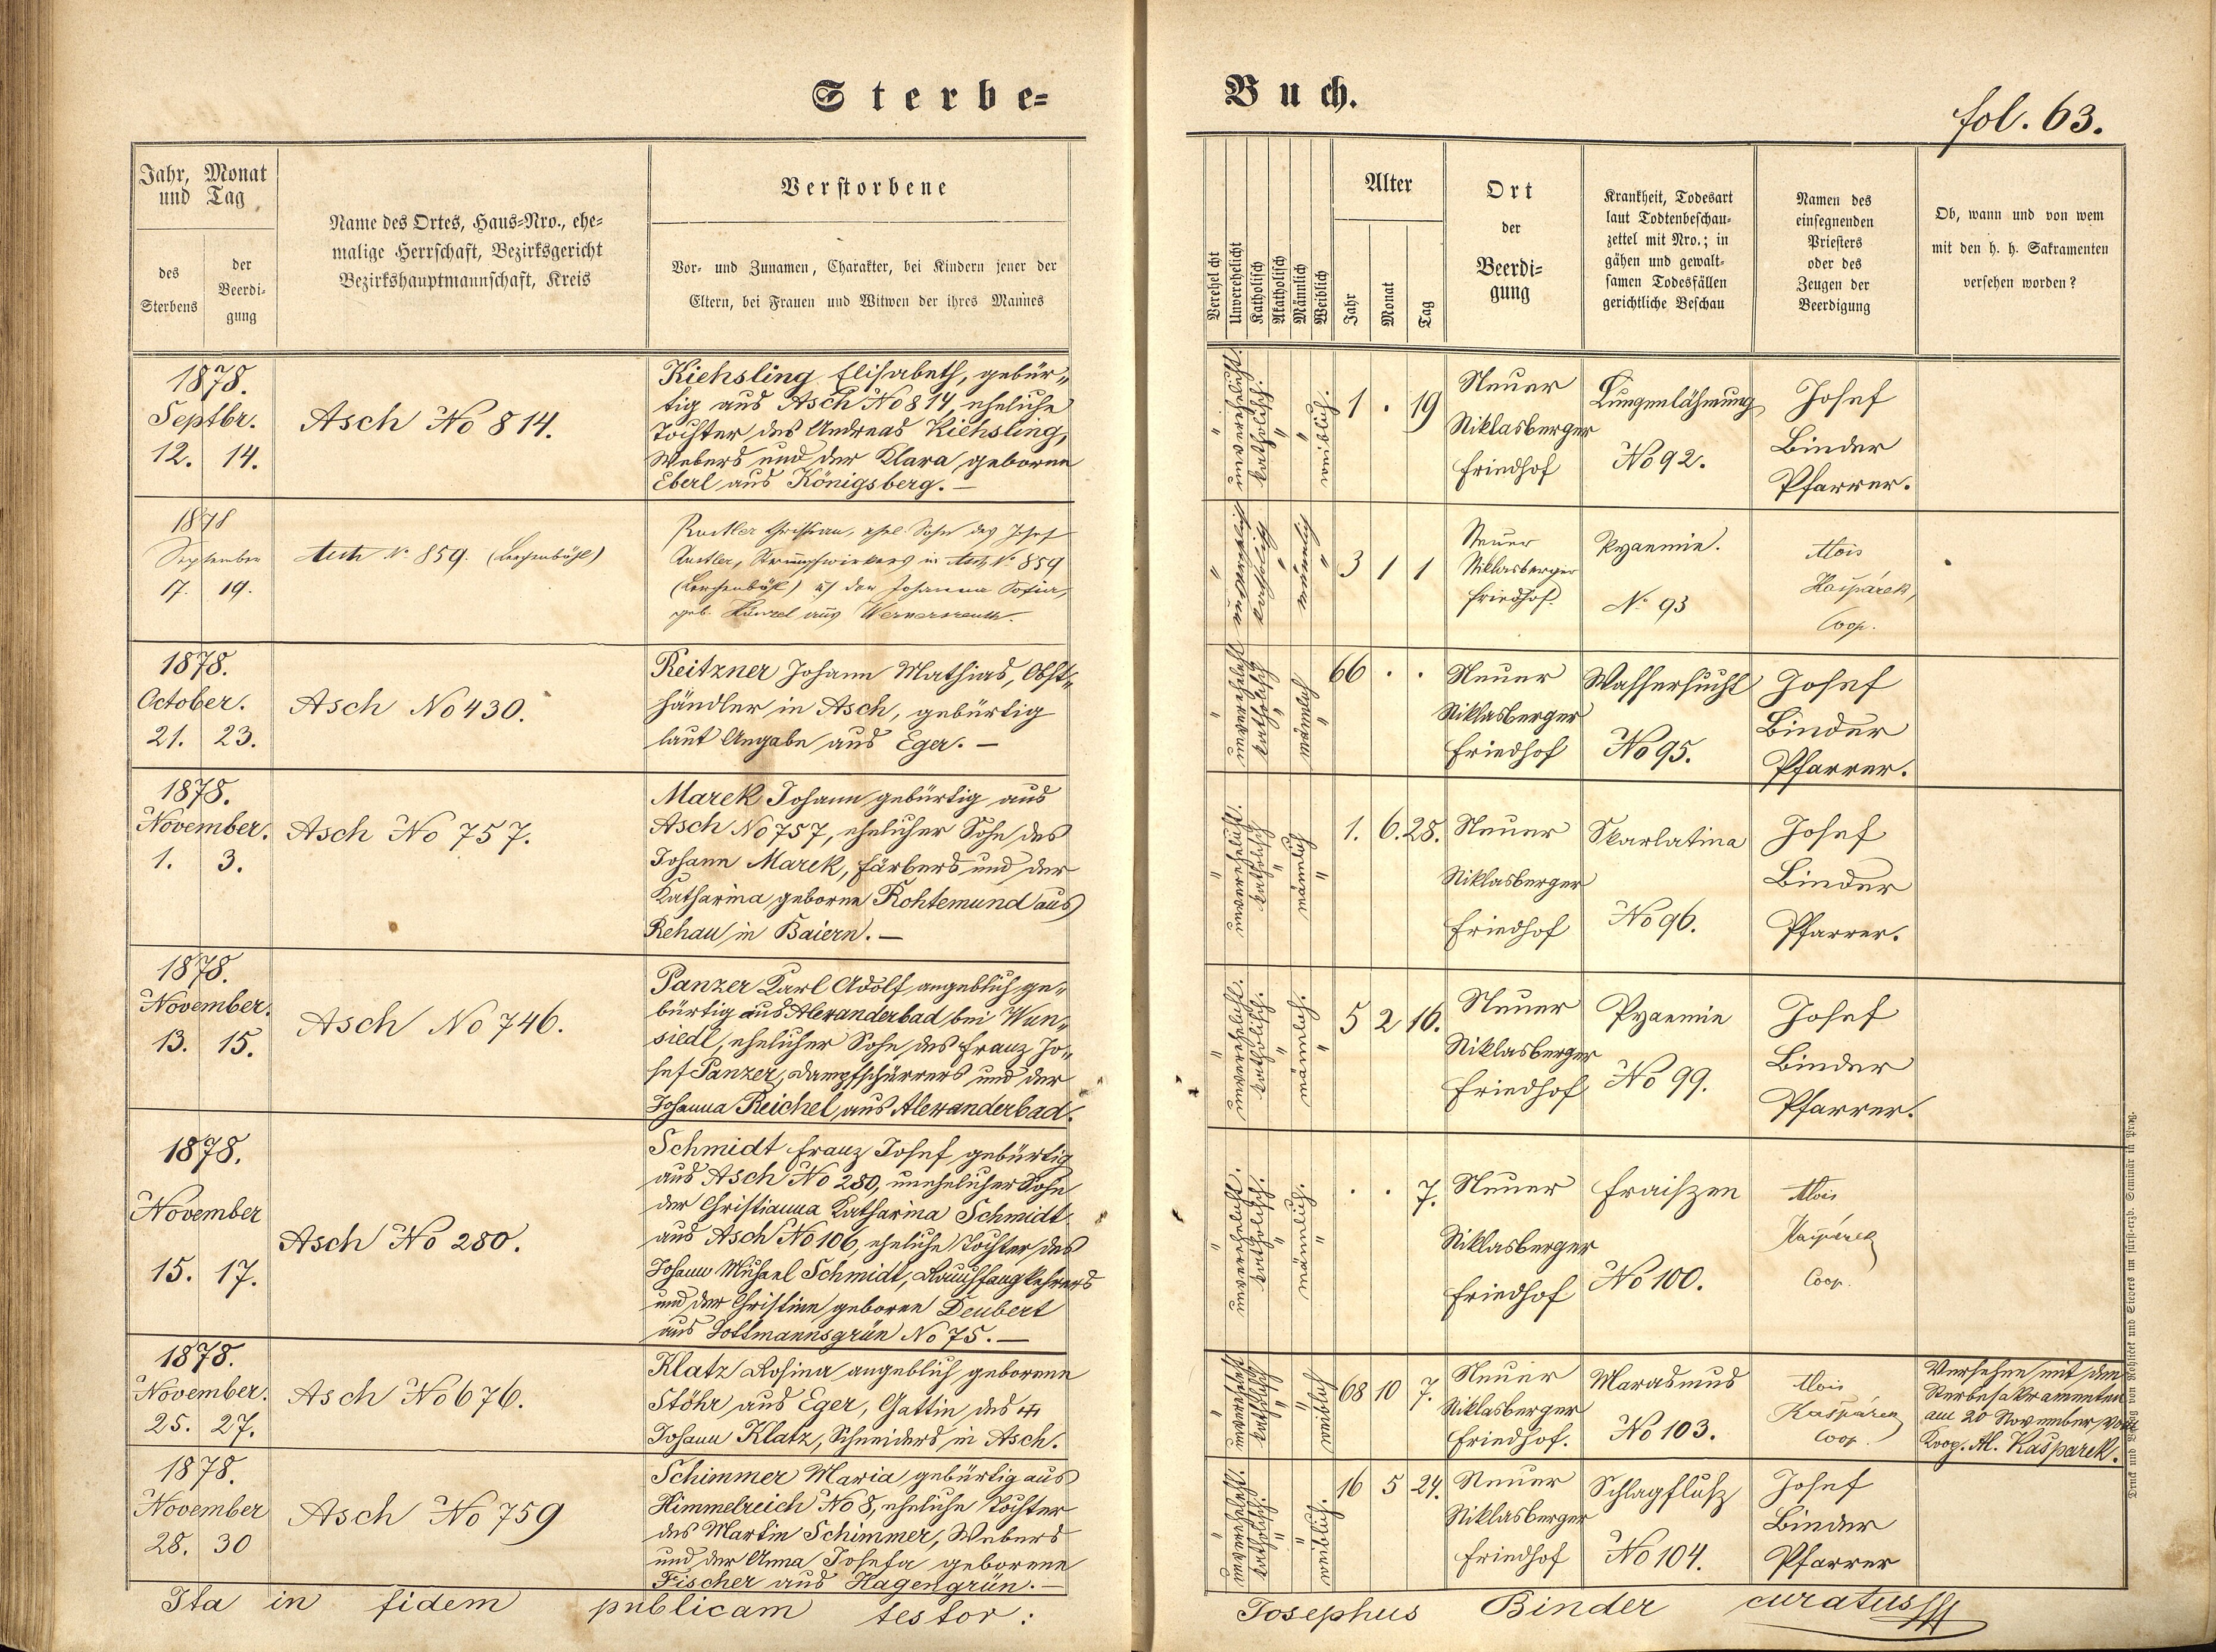 Sterbe=
Buch.
fol. 63.
Jahr, Monat
und Tag
des
Sterbens
der
Beerdi-
gung
Name des Ortes, Haus=Nro., ehe-
malige Herrschaft, Bezirksgericht
Bezirkshauptmannschaft, Kreis
Verstorbene
Vor- und Zunamen, Charakter, bei Kindern jener der
Eltern, bei Frauen und Witwen der ihres Mannes
Verehelicht
Unverehelicht
Katholisch
Akatholisch
Männlich
Weiblich
Alter
Jahr
Monat
Tag
Ort
der
Beerdi=
gung
Krankheit, Todesart
laut Todtenbeschau-
zettel mit Nro.; in
gähen und gewalt-
samen Todesfällen
gerichtliche Beschau
Namen des
einsegnenden
Priesters
oder des
Zeugen der
Beerdigung
Ob, wann und von wem
mit den h. h. Sakramenten
versehen worden?
1878.
Septbr.
12. 14.
Asch No 814.
Kiehsling Elisabeth, gebür„
tig aus Asch No 814, eheliche
Tochter des Andreas Kiehsling,
Webers und der Klara geborne
Eberl aus Königsberg. —
" unverehelicht. katholisch. " " weiblich.
1 . 19
Neuer
Niklasberger
Friedhof
Lungenlähmung
No 92.
Josef
Binder
Pfarrer.
1878
September
17. 19.
Asch No 859. (Lerchenböhl)
Christian, ehel. Sohn des Josef
Strumpfwirkers in Asch No 859
(Lerchenböhl) u der Johanna Sofia,
geb. Künzel aus Wernersreuth.
" unverehelicht katholisch " männlich "
3 1 1
Neuer
Niklasberger
Friedhof.
Pyaemie.
No 93
Alois
Kašpárek,
Coop.
1878.
October.
21. 23.
Asch No 430.
Reitzner Johann Mathias, Obst„
händler in Asch, gebürtig
laut Angabe aus Eger. —
" unverehelicht katholisch " männlich "
66 . .
Neuer
Niklasberger
Friedhof
Wassersucht
No 95.
Josef
Binder
Pfarrer.
1878.
November.
1. 3.
Asch No 757.
Marek Johann gebürtig aus
Asch No 757, ehelicher Sohn des
Johann Marek, Färbers und der
Katharina geborne Rohtemund aus
Rehau in Baiern. —
" unverehelicht. katholisch " männlich "
1. 6. 28.
Neuer
Niklasberger
Friedhof
Skarlatina
No 96.
Josef
Binder
Pfarrer.
1878.
November.
13. 15.
Asch No 746.
Panzer Karl Adolf, angeblich ge„
bürtig aus Alexanderbad bei Wun„
siedl, ehelicher Sohn des Franz Jo„
sef Panzer, Dampfschürrers und der
Johanna Reichel aus Alexanderbad.
" unverehelicht. katholisch. " männlich. "
5 2 16.
Neuer
Niklasberger
Friedhof
Pyaemie
No 99.
Josef
Binder
Pfarrer.
1878.
November
15. 17.
Asch No 280.
Schmidt Franz Josef gebürtig
aus Asch No 280, unehelicher Sohn
der Christianna Katharina Schmidt
aus Asch No 106, eheliche Tochter des
Johann Michael Schmidt, Rauchfangkehrers
und der Christine geborne Deubert
aus Gottmannsgrün No 75. —
" unverehelicht. katholisch. " männlich. "
. . 7.
Neuer
Niklasberger
Friedhof
Fraiszen
No 100.
Alois
Kašpárek
Coop.
1878.
November.
25. 27.
Asch No 676.
Klatz Rosina angeblich geborene
Stöhr aus Eger, Gattin des
Johann Klatz, Schneiders in Asch.
" katholisch " " weiblich
68 10 7.
Neuer
Niklasberger
Friedhof.
Marasmus
No 103.
Alois
Kašpárek
Coop.
Versehen mit den
Sterbesakramenten
am 20 November vom
Koop. Al. Kašparek.
1878.
November
28. 30
Asch No 759
Schimmer Maria gebürtig aus
Himmelreich No 8, eheliche Tochter
des Martin Schimmer, Webers
und der Anna Josefa geborene
Fischer aus Hagengrün. —
" unverehelicht. katholisch. " " weiblich.
16 5 24.
Neuer
Niklasberger
Friedhof
Schlagflusz
No 104.
Josef
Binder
Pfarrer
Ita in fidem publicam testor:
Josephus Binder curatus
Druck und Verlag von Rohlicek und Sievers im fürsterzb. Seminär in Prag.